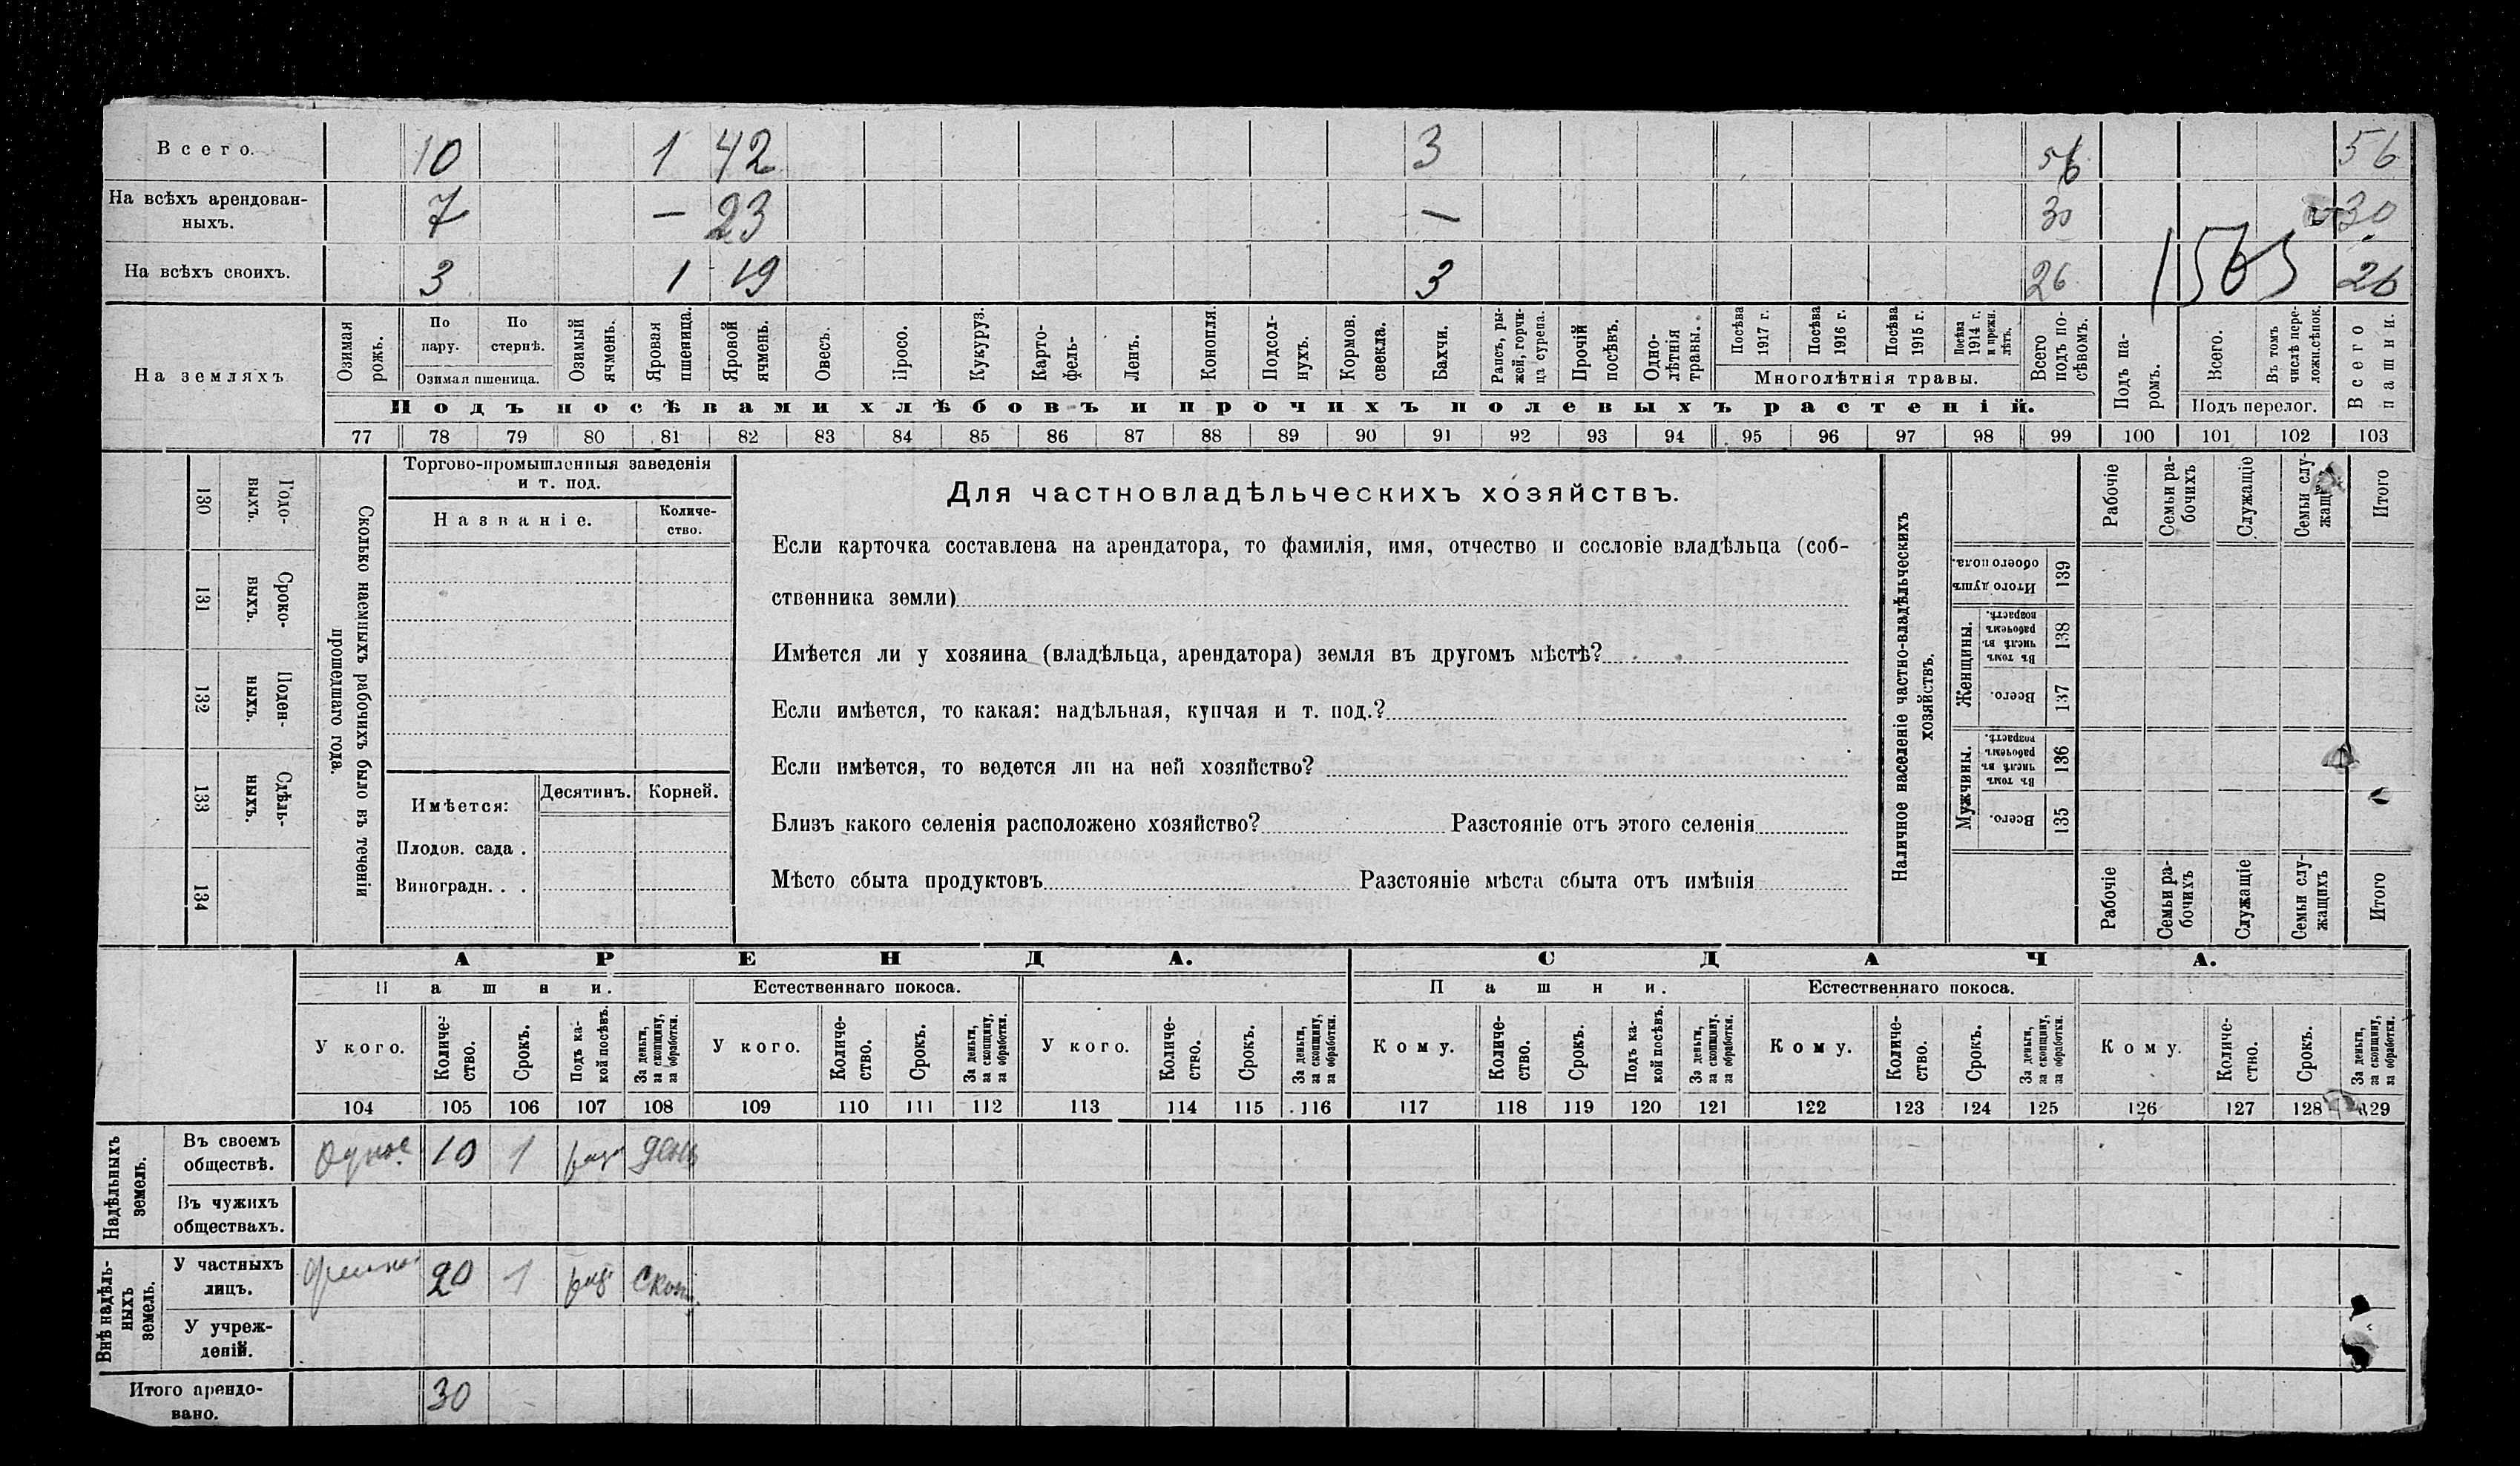 Всего. 10 1 42 3 56 56
На всѣхъ арендован-
ныхъ. 7 — 23 — 30 30
На всѣхъ своихъ. 3 1 19 3 26 1565 26
На земляхъ
Озимая рожь.
По пару.
По стернѣ.
Озимая пшеница.
Озимый ячмень.
Яровая пшеница.
Яровой ячмень.
Овесъ.
Просо.
Кукуруз.
Карто-
фель-
Ленъ.
Конопля.
Подсол-
нухъ.
Кормов.
свекла.
Бахчи.
Рапсъ, ры-
жей, горчи-
ца сурепа.
Прочій
посѣвъ.
Одно-
лѣтнія
травы.
Посѣва
1917 г.
Посѣва
1916 г.
Посѣва
1915 г.
Посѣва
1914 г.
и прежн.
лѣтъ.
Многолѣтнія травы.
Всего
подъ по-
сѣвомъ.
Подъ па-
ромъ.
Всего.
Въ томъ
числѣ пере-
ложн.сѣнок.
Подъ перелог.
Всего
пашни.
Подъ посѣвами хлѣбовъ и прочихъ полевыхъ растеній.
77 78 79 80 81 82 83 84 85 86 87 88 89 90 91 92 93 94 95 96 97 98 99 100 101 102 103
130 Годо-
выхъ.
131 Сроко-
выхъ.
132 Поден-
ныхъ.
133 Сдѣль-
ныхъ.
134
Сколько наемныхъ рабочихъ было въ теченіи
прошедшаго года.
Торгово-промышленныя заведенія
и т. под.
Названіе.
Количе-
ство.
Имѣется:
Десятинъ. Корней.
Плодов. сада .
Виноградн. . .
Для частновладѣльческихъ хозяйствъ.
Если карточка составлена на арендатора, то фамилія, имя, отчество и сословіе владѣльца (соб-
ственника земли)
Имѣется ли у хозяина (владѣльца, арендатора) земля въ другомъ мѣстѣ?
Если имѣется, то какая: надѣльная, купчая и т. под.?
Если имѣется, то ведется ли на ней хозяйство?
Близъ какого селенія расположено хозяйство? Разстояніе отъ этого селенія
Мѣсто сбыта продуктовъ Разстояніе мѣста сбыта отъ имѣнія
Наличное населеніе частно-владѣльческихъ
хозяйствъ.
Рабочіе
Семьи ра-
бочихъ
Служащіе
Семьи слу-
жащихъ
Итого
Итого душъ
обоего пола.
139
Женщины.
Въ томъ
числѣ въ
рабочемъ
возрастѣ.
138
Всего.
137
Мужчины.
Въ томъ
числѣ въ
рабочемъ
возрастѣ.
136
Всего.
135
Рабочіе
Семьи ра-
бочихъ
Служащіе
Семьи слу-
жащихъ
Итого
АРЕНДА. СДАЧА.
Пашни. Естественнаго покоса. Пашни. Естественнаго покоса.
У кого.
Количе-
ство.
Срокъ.
Подъ ка-
кой посѣвъ.
За деньги,
за скопщину,
за обработки.
У кого.
Количе-
ство.
Срокъ.
За деньги,
за скопщину,
за обработки.
У кого.
Количе-
ство.
Срокъ.
За деньги,
за скопщину,
за обработки.
Кому.
Количе-
ство.
Срокъ.
Подъ ка-
кой посѣвъ.
За деньги,
за скопщину.
за обработки.
Кому.
Количе-
ство.
Срокъ.
За деньги,
за скопщину,
за обработки.
Кому.
Количе-
ство.
Срокъ.
За деньги,
за скопщину,
за обработки.
104 105 106 107 108 109 110 111 112 113 114 115 116 117 118 119 120 121 122 123 124 125 126 127 128 129
Надѣльныхъ
земель.
Въ своемъ
обществѣ. 10 1 ден
Въ чужихъ
обществахъ.
Внѣ надѣль-
ныхъ
земель.
У частныхъ
лицъ. 20 1 скоп.
У учреж-
деній.
Итого арендо-
вано. 30